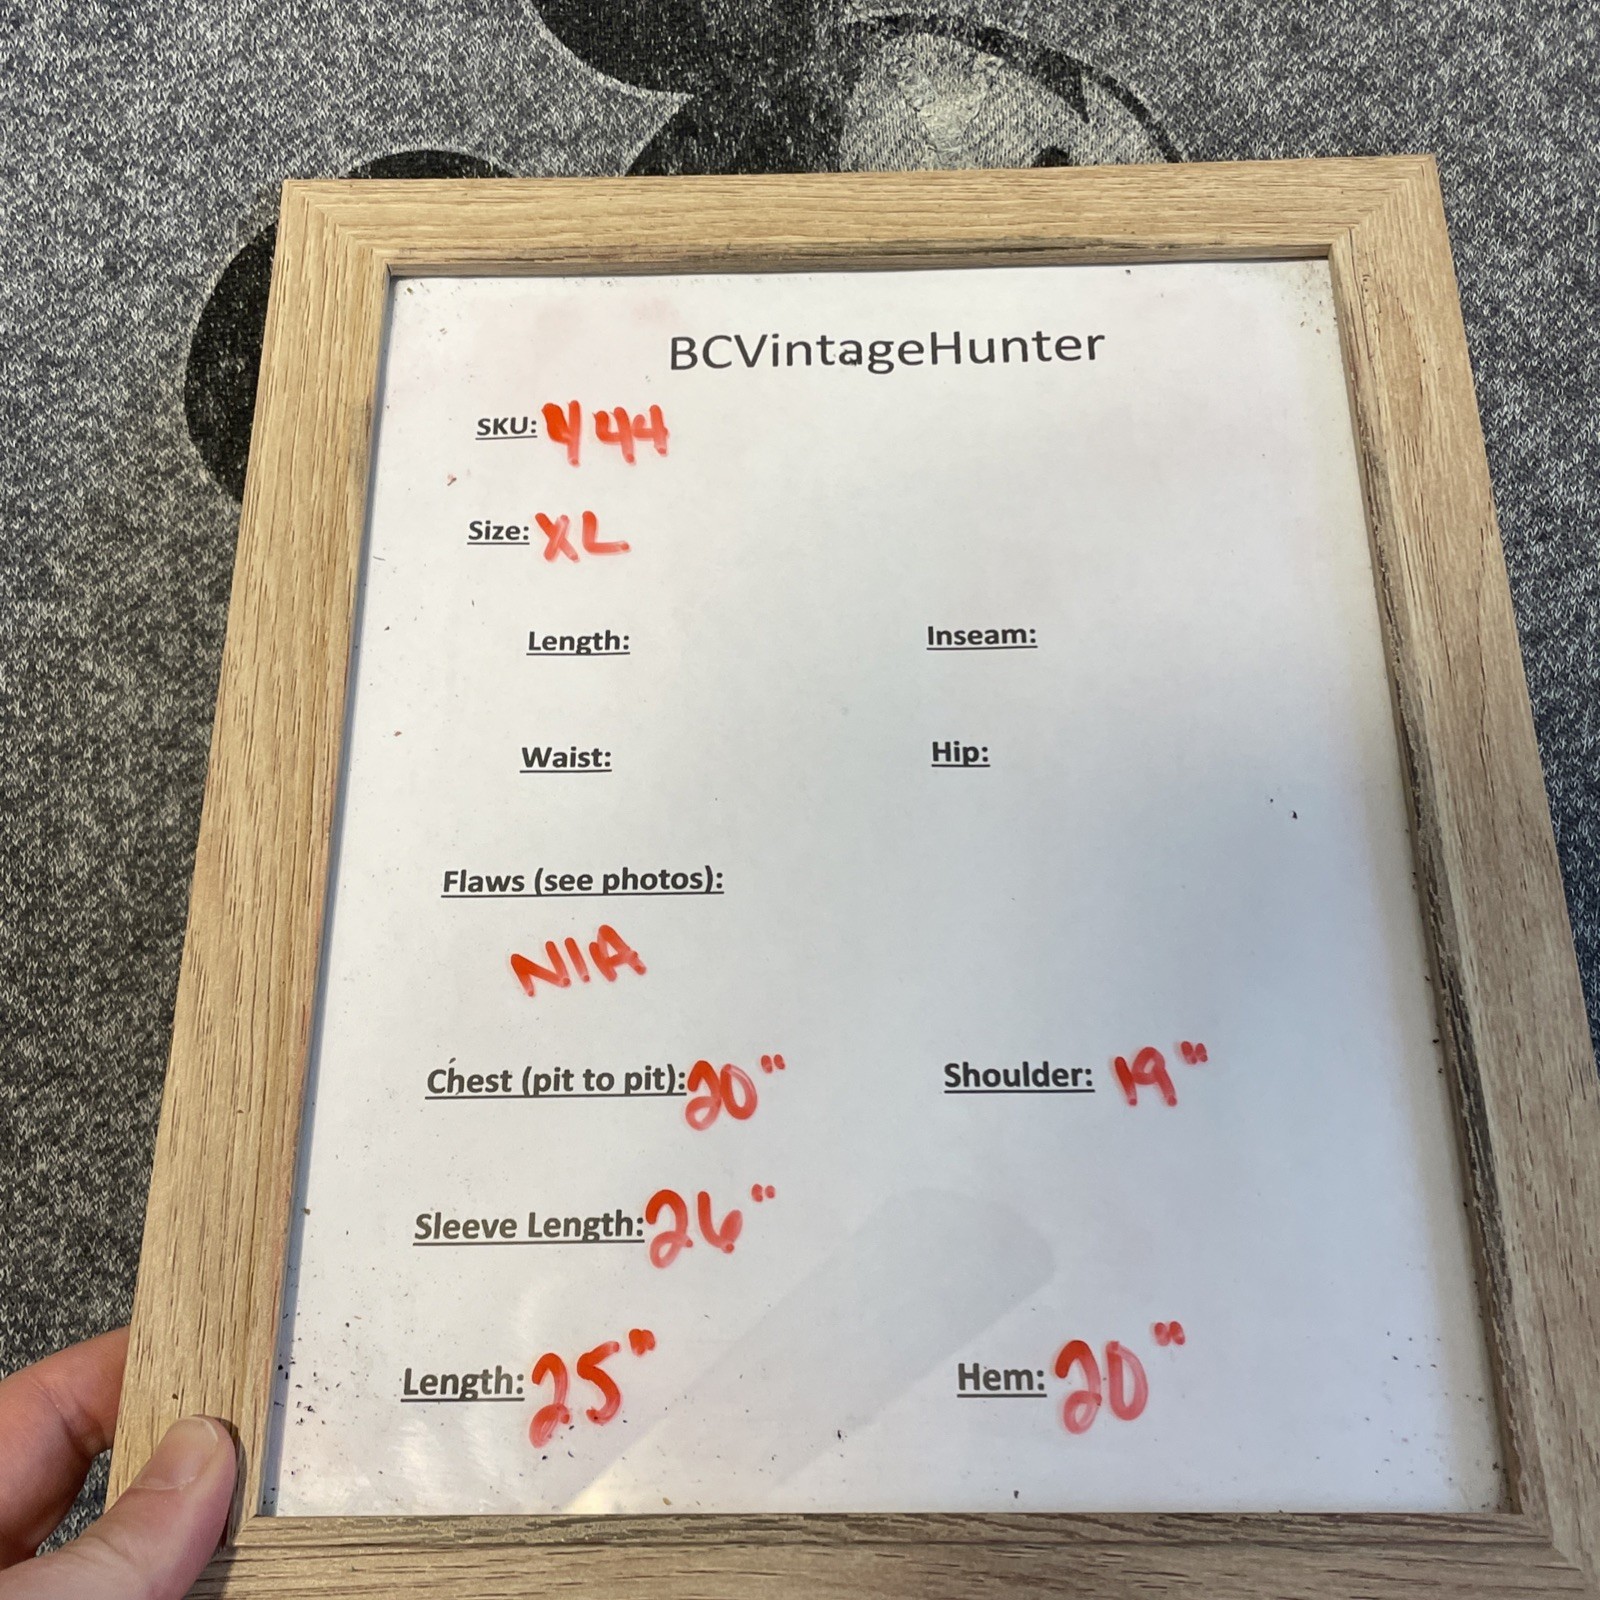 BCVintageHunter
SKU: 444
Size: XL
Length: Inseam:
Waist: Hip:
Flaws (see photos):
N/A
Chest (pit to pit): 20" Shoulder: 19"
Sleeve Length: 26"
Length: 25" Hem: 20"